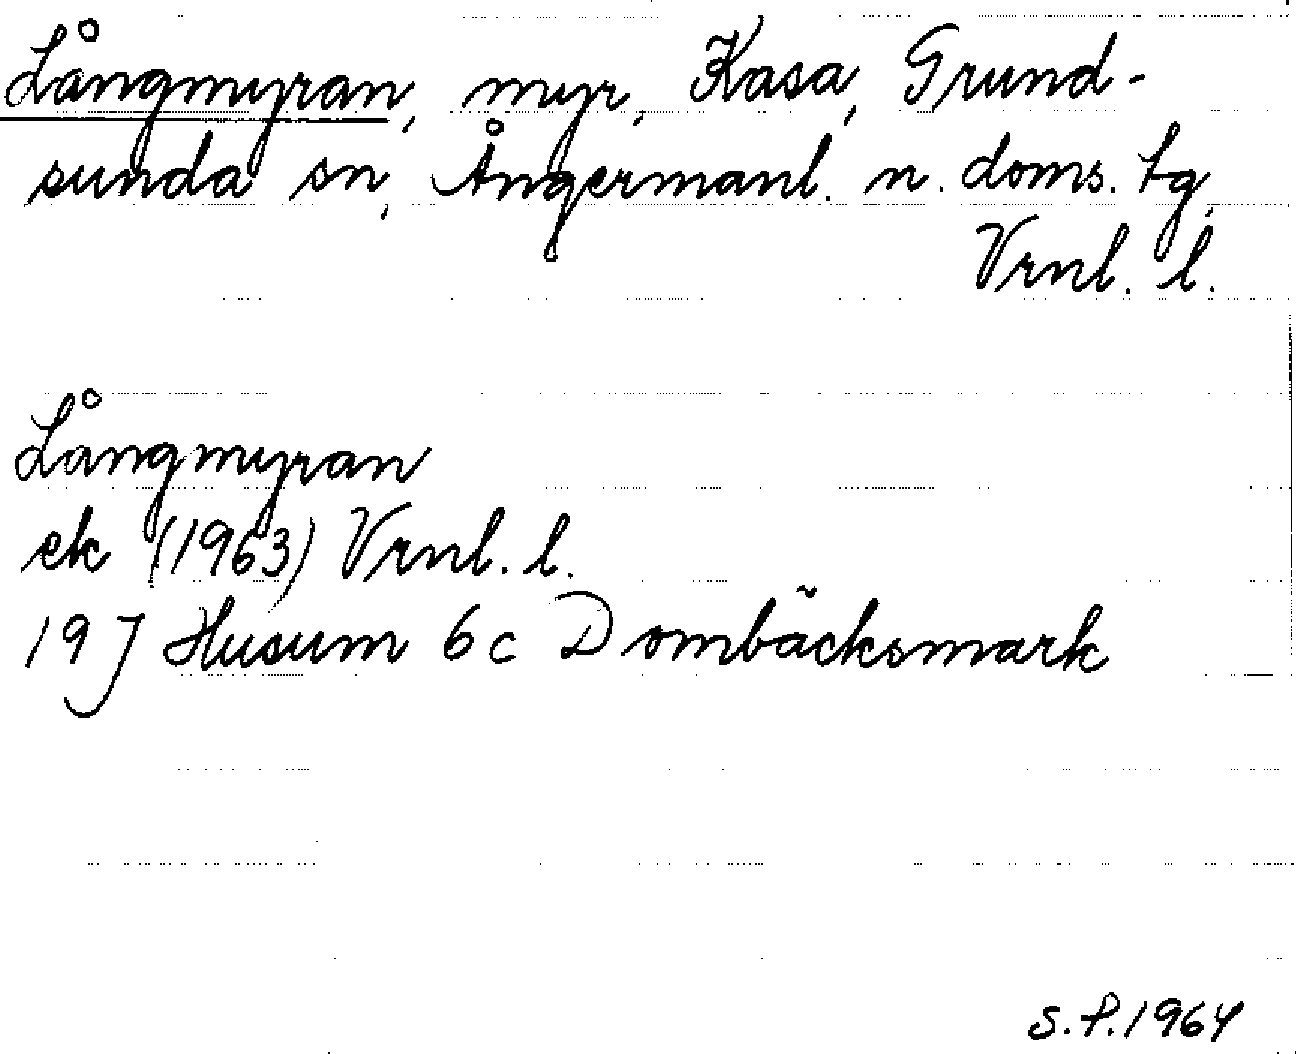 Långmyran, myr, Kasa, Grund-
sunda sn, Ångermanl. n. doms. tg,
Vrnl. l.
Långmyran
ek (1963) Vrnl. l.
19J Husum 6c Dombäcksmark
S.P. 1964